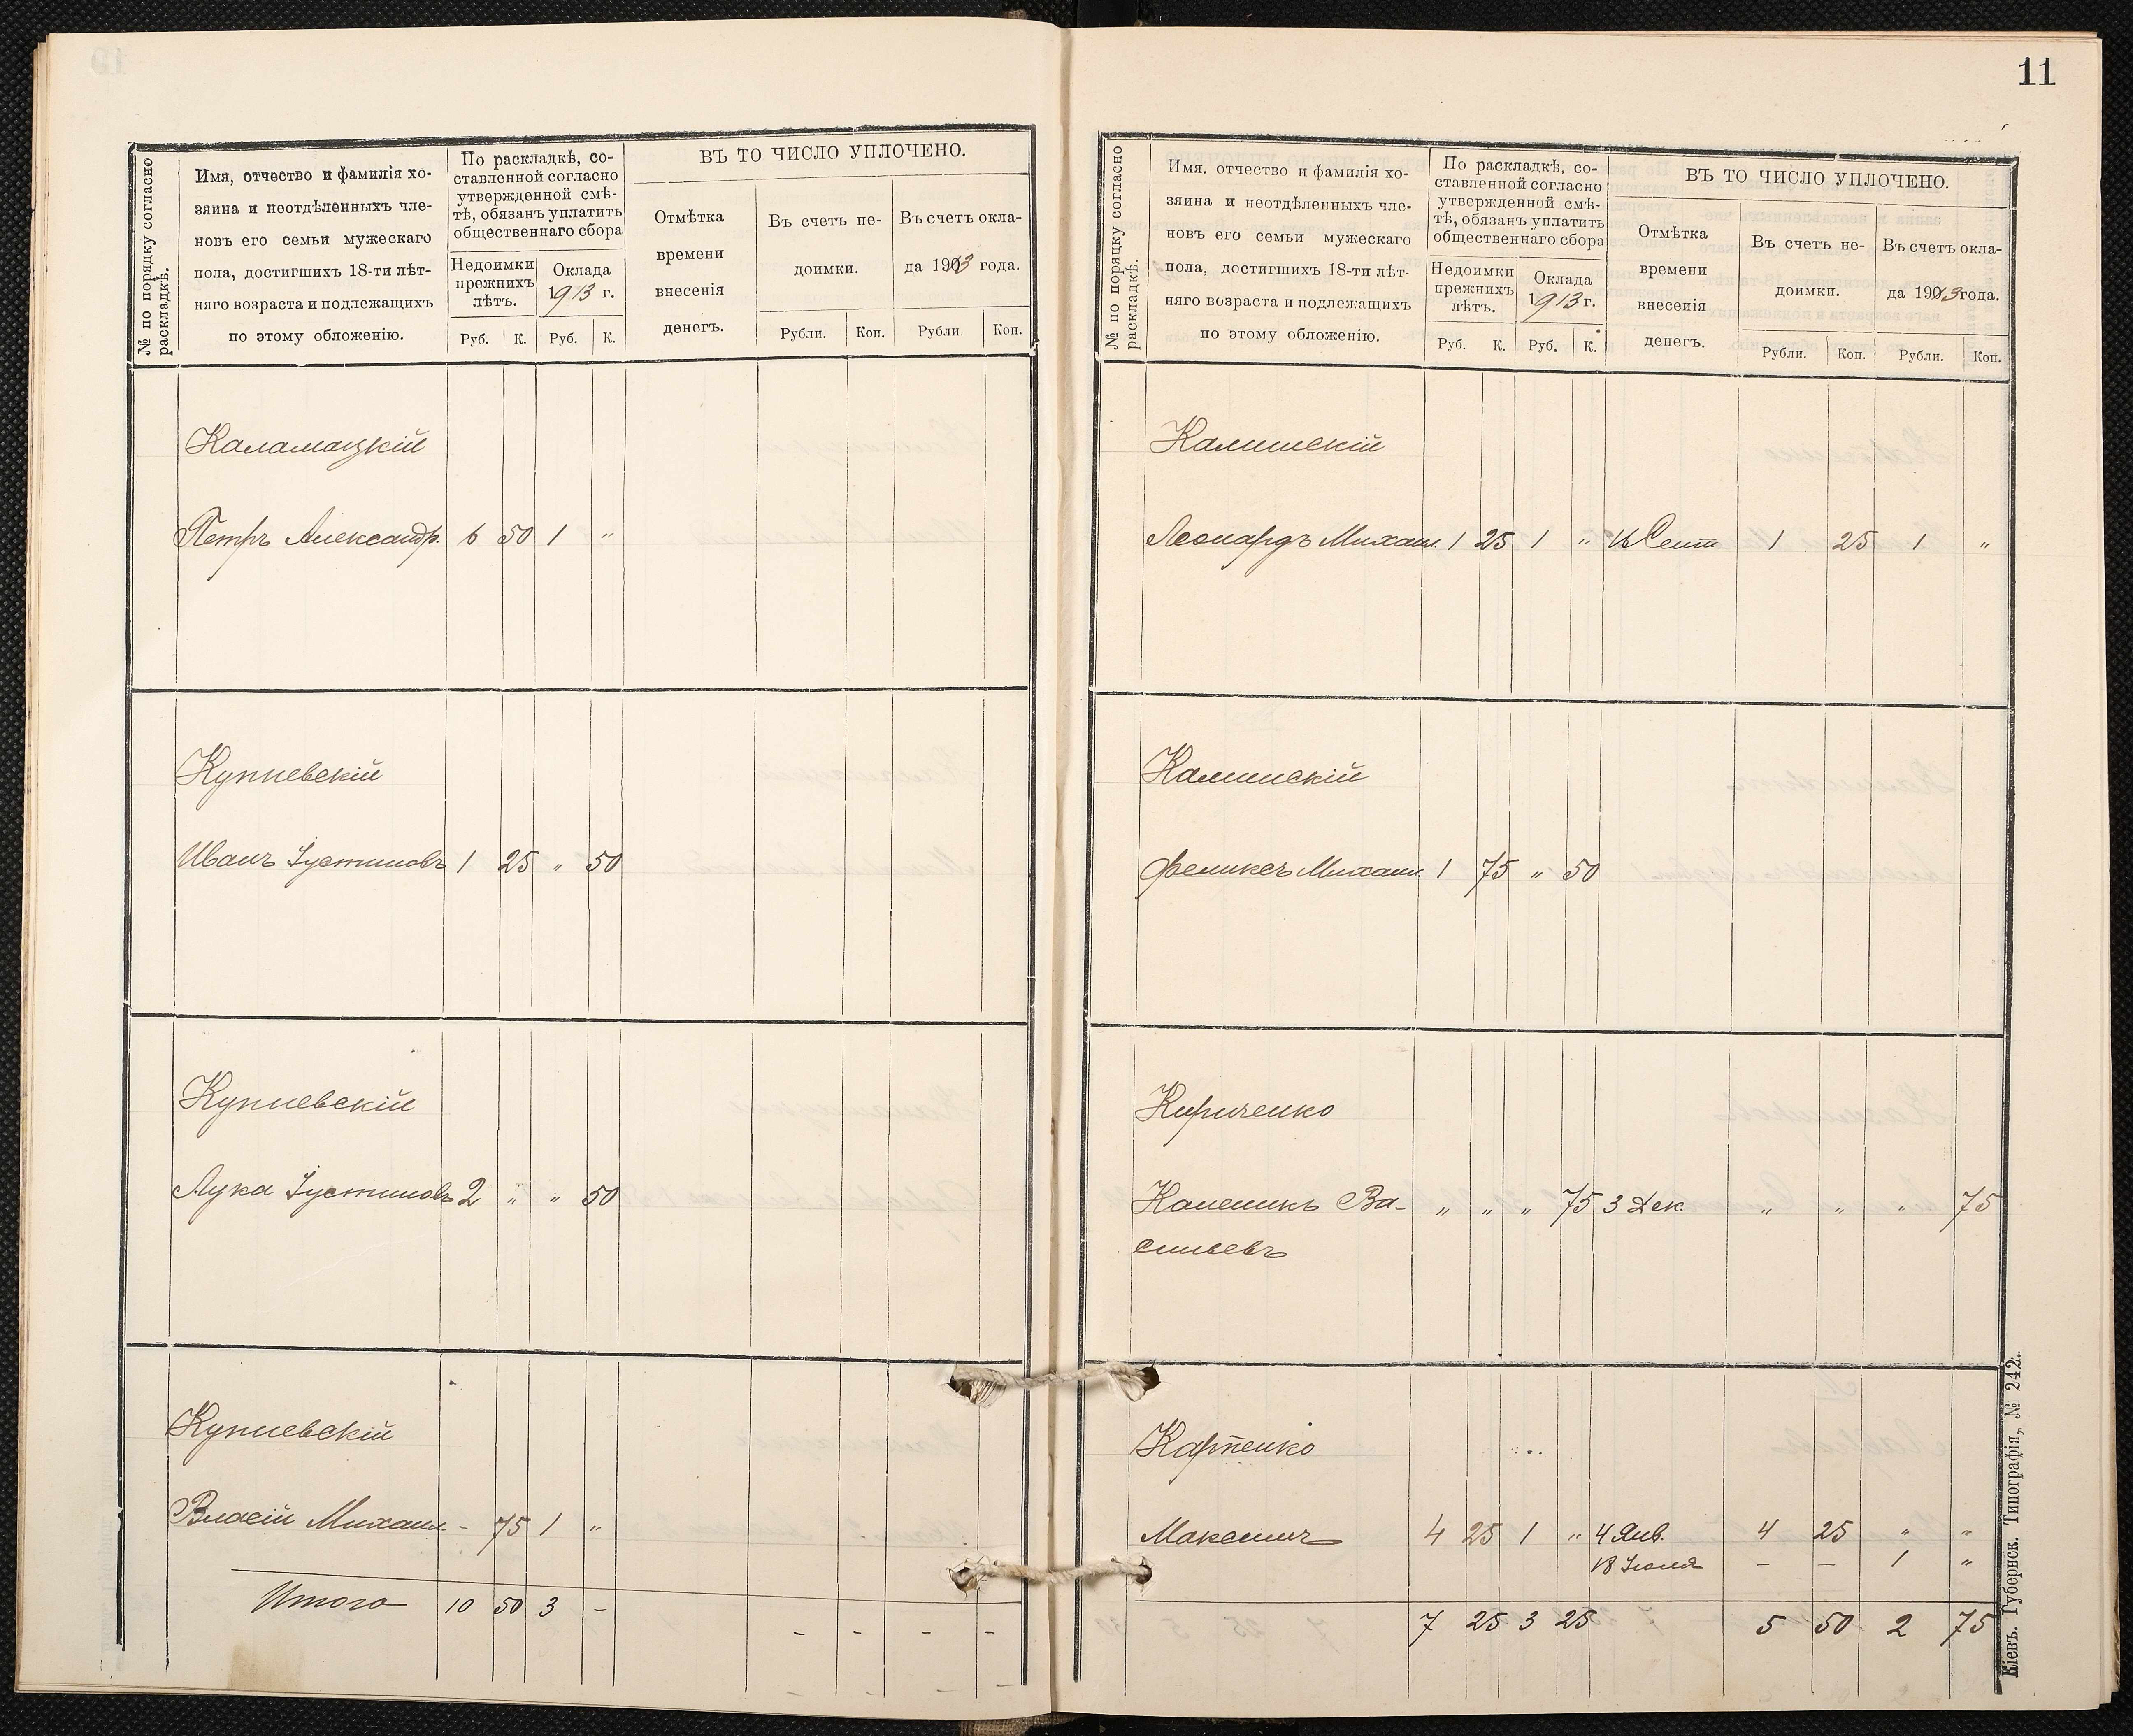 11
№ по порядку согласно
раскладкѣ.
Имя, отчество и фамилія хо-
зяина и неотдѣленныхъ чле-
новъ его семьи мужескаго
пола, достигшихъ 18-ти лѣт-
няго возраста и подлежащихъ
по этому обложенію.
По раскладкѣ, со-
ставленной согласно
утвержденной смѣ-
тѣ, обязанъ уплатить
общественнаго сбора
Недоимки
прежнихъ
лѣтъ.
Оклада
1913 г.
Руб. К. Руб. К.
ВЪ ТО ЧИСЛО УПЛОЧЕНО.
Отмѣтка
времени
внесенія
денегъ.
Въ счетъ не-
доимки.
Въ счетъ окла-
да 1913 года.
Рубли. Коп. Рубли. Коп.
Каламацкій
Петръ Александр. 6 50 1 "
Купчевскій
Иванъ Іустиновъ 1 25 " 50
Купчевскій
Лука Іустиновъ 2 " " 50
Купчевскій
Власій Михаил. - 75 1 "
Итого 10 50 3 -
- - - -
№ по порядку согласно
раскладкѣ.
Имя, отчество и фамилія хо-
зяина и неотдѣленныхъ чле-
новъ его семьи мужескаго
пола, достигшихъ 18-ти лѣт-
няго возраста и подлежащихъ
по этому обложенію.
По раскладкѣ, со-
ставленной согласно
утвержденной смѣ-
тѣ, обязанъ уплатить
общественнаго сбора
Недоимки
прежнихъ
лѣтъ.
Оклада
1913 г.
Руб. К. Руб. К.
ВЪ ТО ЧИСЛО УПЛОЧЕНО.
Отмѣтка
времени
внесенія
денегъ.
Въ счетъ не-
доимки.
Въ счетъ окла-
да 1913 года.
Рубли. Коп. Рубли. Коп.
Калинскій
Леонардъ Михаил. 1 25 1 " 16 Сент 1 25 1 "
Калинскій
Феликсъ Михаил. 1 75 " 50
Кириченко
Каленикъ Ва- " " " 75 3 Дек. " " " 75
сильевъ
Карпенко
Максимъ 4 25 1 " 4 Янв. 4 25 " "
18 Іюля - - 1 "
7 25 3 25 5 50 2 75
Кіевъ. Губернск. Типографія, № 242.